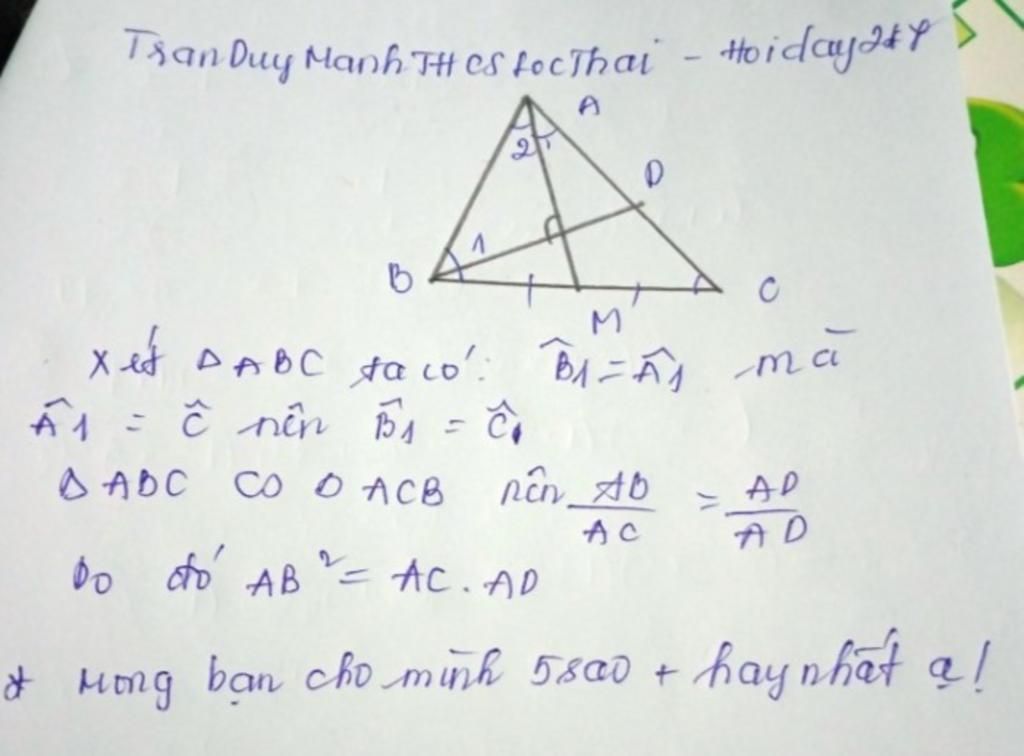 TranDuyManhTHCSLocThai - Hoiday24Y
A
2 1
D
1
B
C
M
Xét ΔABC ta có: B̂1 = Â1 mà
Â1 = Ĉ nên B̂1 = Ĉ1
ΔABC ∽ ΔACB nên AB/AC = AD/AD
Do đó AB² = AC.AD
* Mong bạn cho mình 5sao + hay nhất ạ!